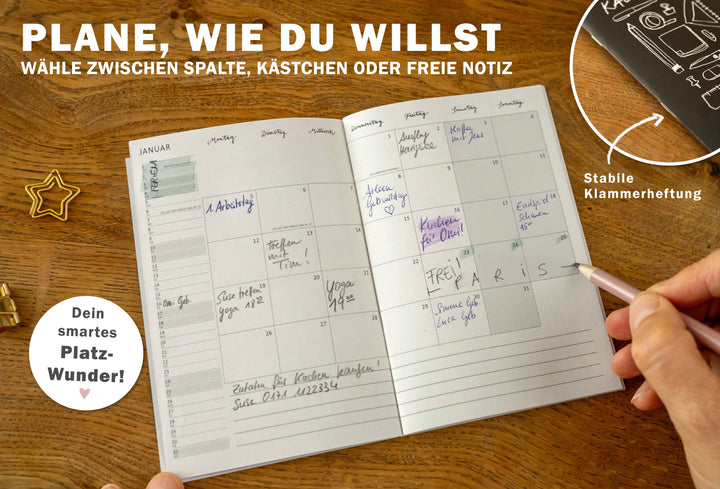 PLANE, WIE DU WILLST
WÄHLE ZWISCHEN SPALTE, KÄSTCHEN ODER FREIE NOTIZ
Stabile
Klammerheftung
Dein
smartes
Platz-
Wunder!
JANUAR
Montag Dienstag Mittwoch Donnerstag Freitag Samstag Sonntag
FERIEN
1 2 3 4
Ausflug
Kaffee
mit Jens
5 6 7 8 9 10 11
1. Arbeitstag
Geburtstag
12 13 14 15 16 17 18
Treffen
mit
Tim!
Kuchen
für Omi!
15°°
19 20 21 22 23 24 25
Suse treffen
Yoga 18³⁰
Yoga
19°°
FREI!
PARIS
26 27 28 29 30 31
Simone Geb.
Luca Geb.
Zutaten für Kuchen kaufen!
Suse 0171 1122334